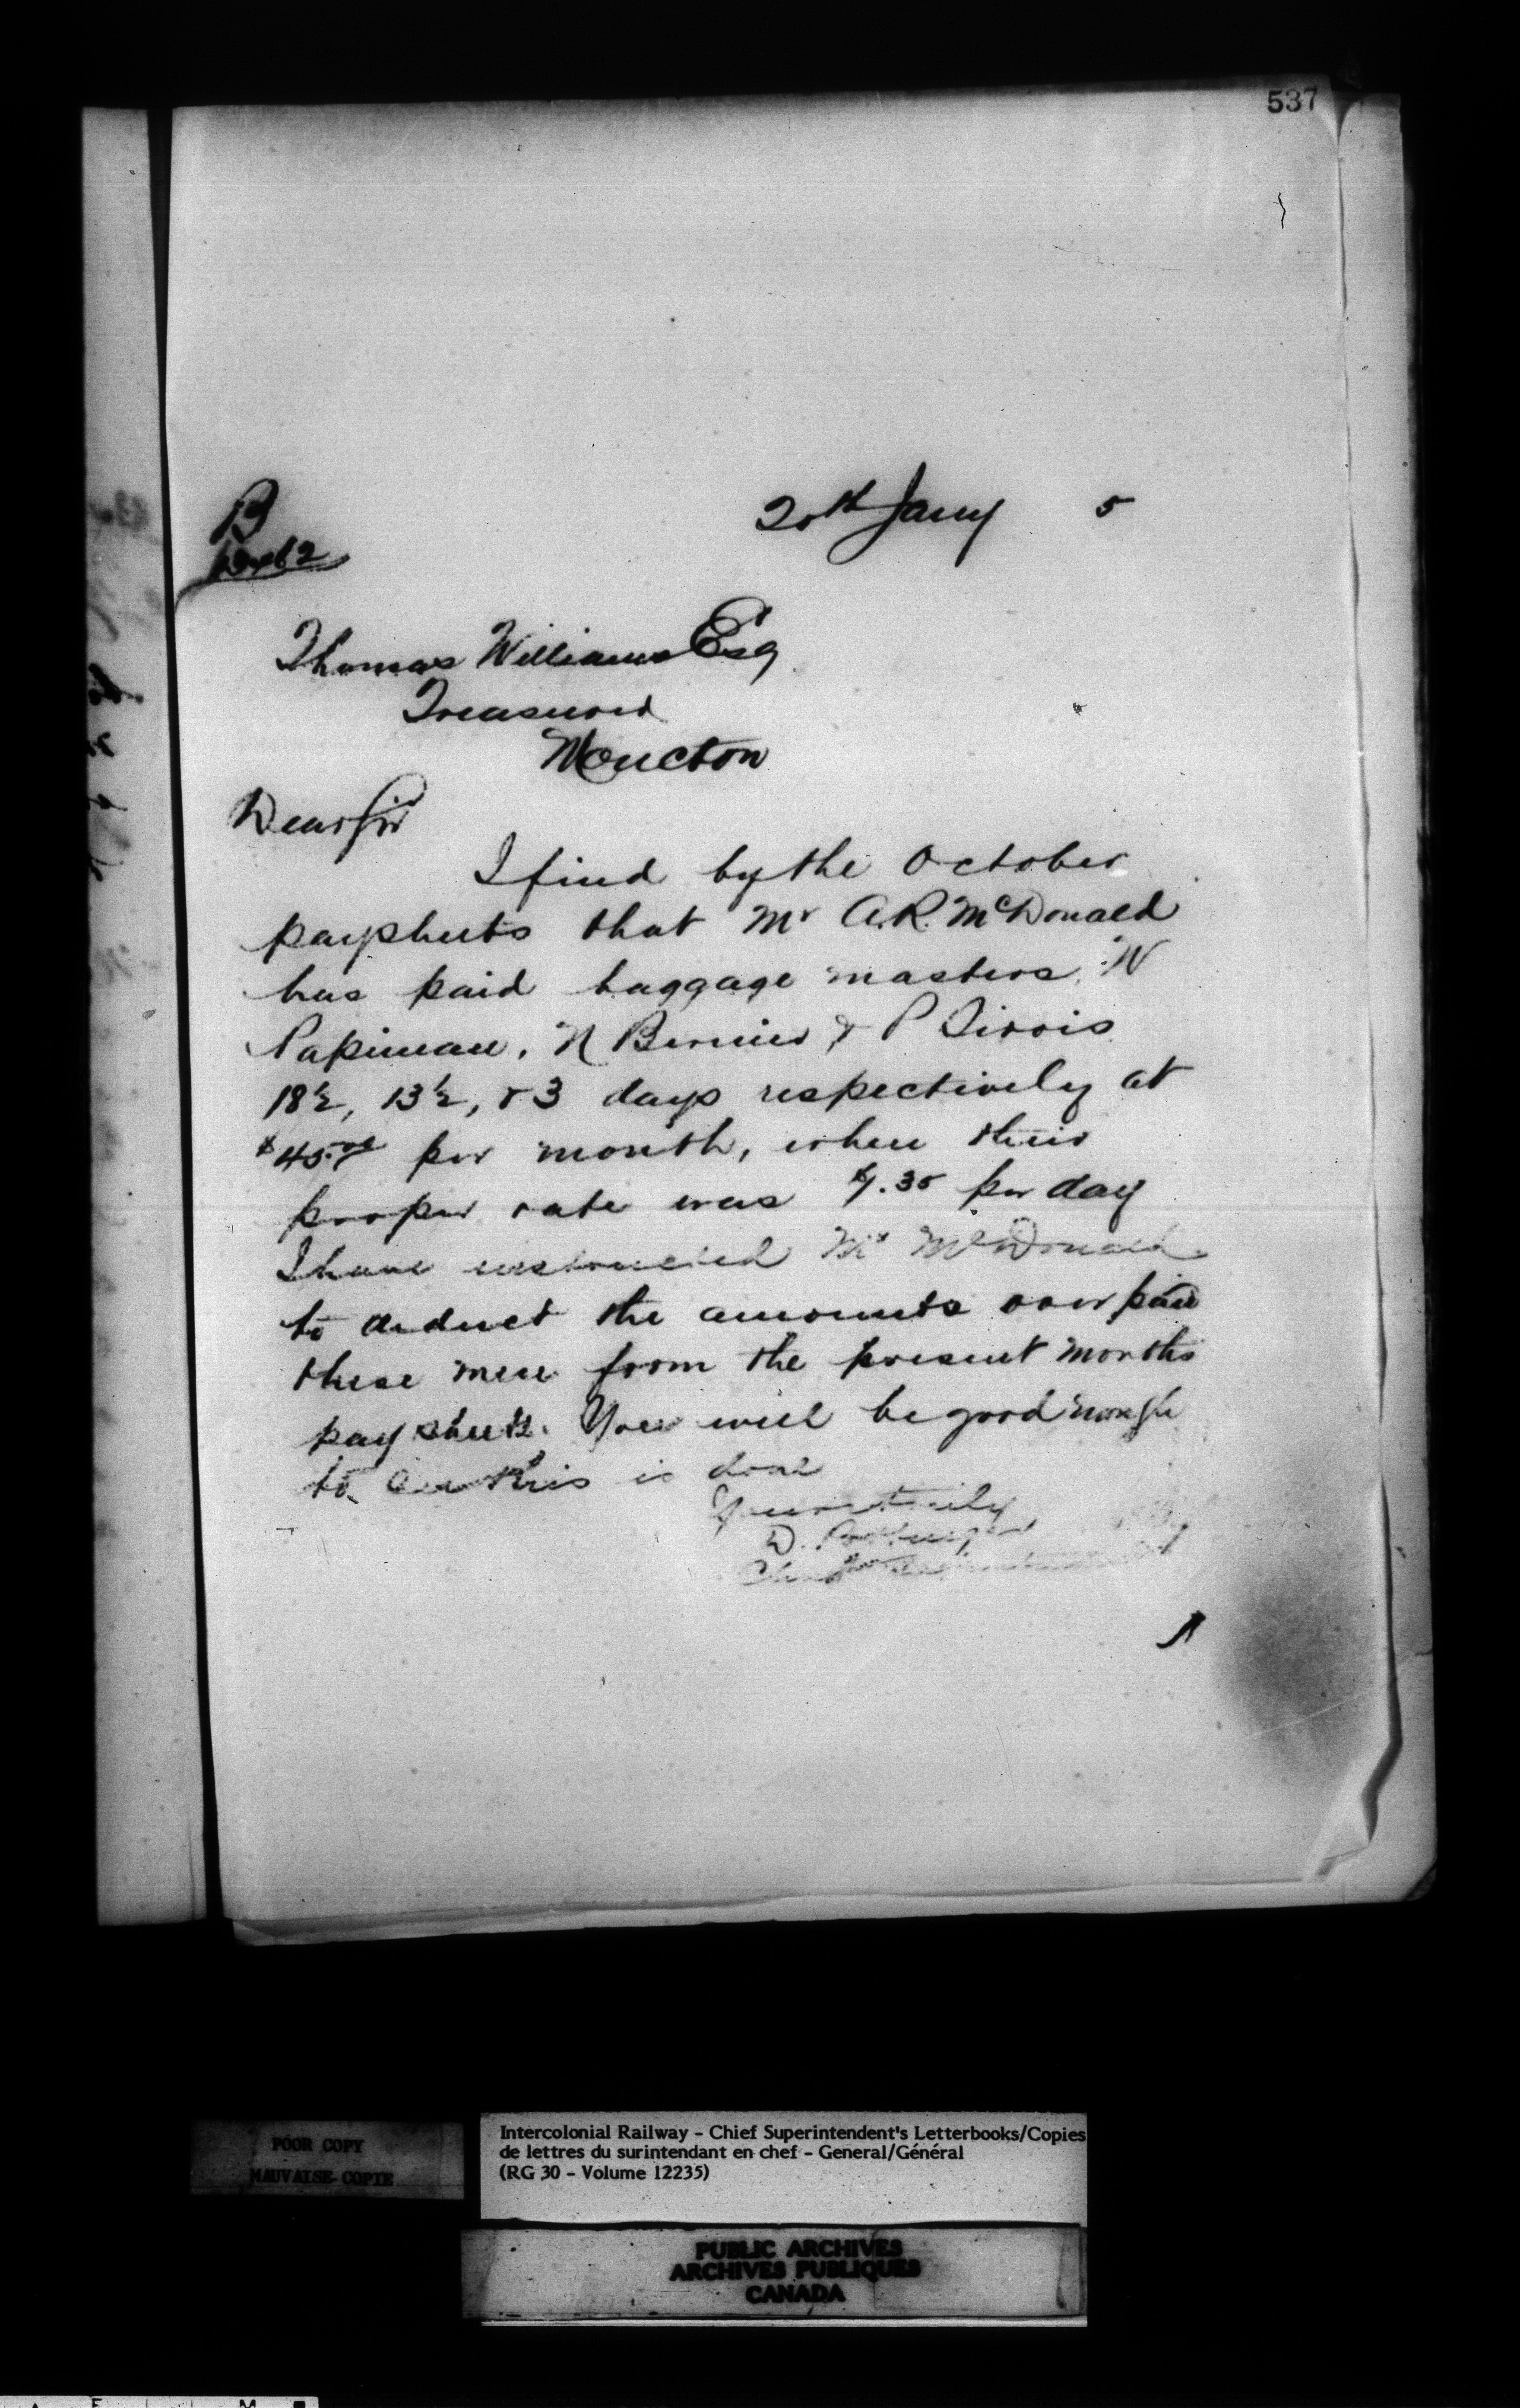 537
B
20th Jany 5
Thomas Williams Esq
Treasurer
Moncton
Dear Sir
I find by the October
paysheets that Mr A.R. McDonald
has paid baggage masters W
Papineau, N Bernier & P Sirois
18½, 13½, & 3 days respectively at
$45.00 per month, when their
proper rate was $1.35 per day
I have instructed Mr McDonald
to deduct the amounts over paid
these men from the present months
pay sheets. You will be good enough
to see this is done
Yours truly
D. Pottinger
Chief Superintendent
POOR COPY
MAUVAISE COPIE
Intercolonial Railway - Chief Superintendent's Letterbooks/Copies
de lettres du surintendant en chef - General/Général
(RG 30 - Volume 12235)
PUBLIC ARCHIVES
ARCHIVES PUBLIQUES
CANADA